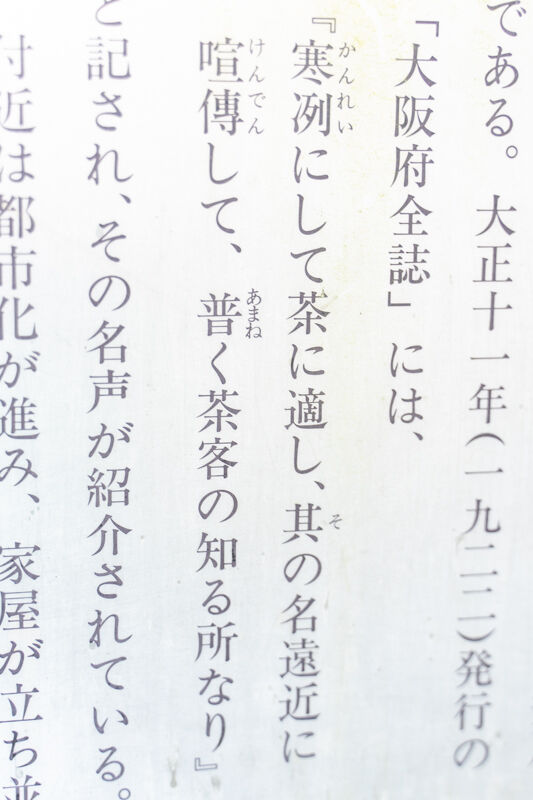 である。大正十一年(一九二二)発行の
「大阪府全誌」には、
『寒冽にして茶に適し、其の名遠近に
喧傳して、普く茶客の知る所なり』
と記され、その名声が紹介されている。
付近は都市化が進み、家屋が立ち並
かんれい
そ
けんでん
あまね